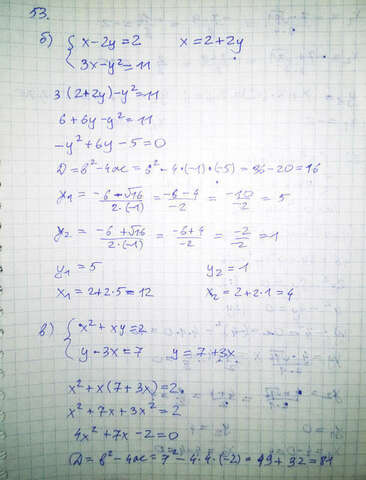 53.
б) { x - 2y = 2     x = 2 + 2y
3x - y² = 11
3(2+2y) - y² = 11
6 + 6y - y² = 11
-y² + 6y - 5 = 0
D = b² - 4ac = 6² - 4·(-1)·(-5) = 36 - 20 = 16
x₁ = (-6 - √16)/(2·(-1)) = (-6 - 4)/(-2) = (-10)/(-2) = 5
x₂ = (-6 + √16)/(2·(-1)) = (-6+4)/(-2) = (-2)/(-2) = 1
y₁ = 5     y₂ = 1
x₁ = 2 + 2·5 = 12     x₂ = 2 + 2·1 = 4
в) { x² + xy = 2
y - 3x = 7     y = 7 + 3x
x² + x(7 + 3x) = 2
x² + 7x + 3x² = 2
4x² + 7x - 2 = 0
D = b² - 4ac = 7² - 4·4·(-2) = 49 + 32 = 81